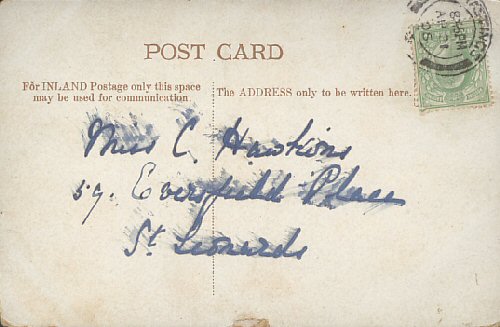 POST CARD
For INLAND Postage only this space
may be used for communication
The ADDRESS only to be written here.
HASTINGS
8.45PM
AP 21
Miss C. Hawkins
59. Eversfield Place
St Leonards